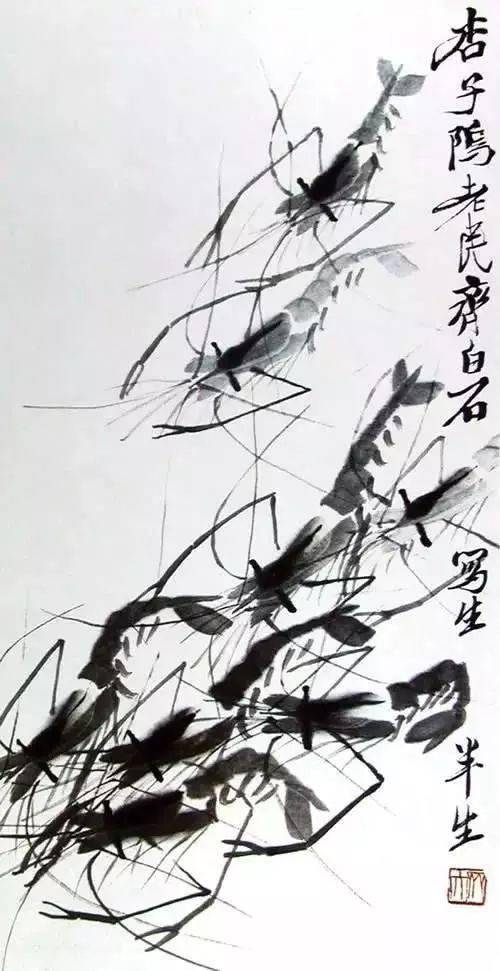 杏子隖老民齊白石
写生
半生